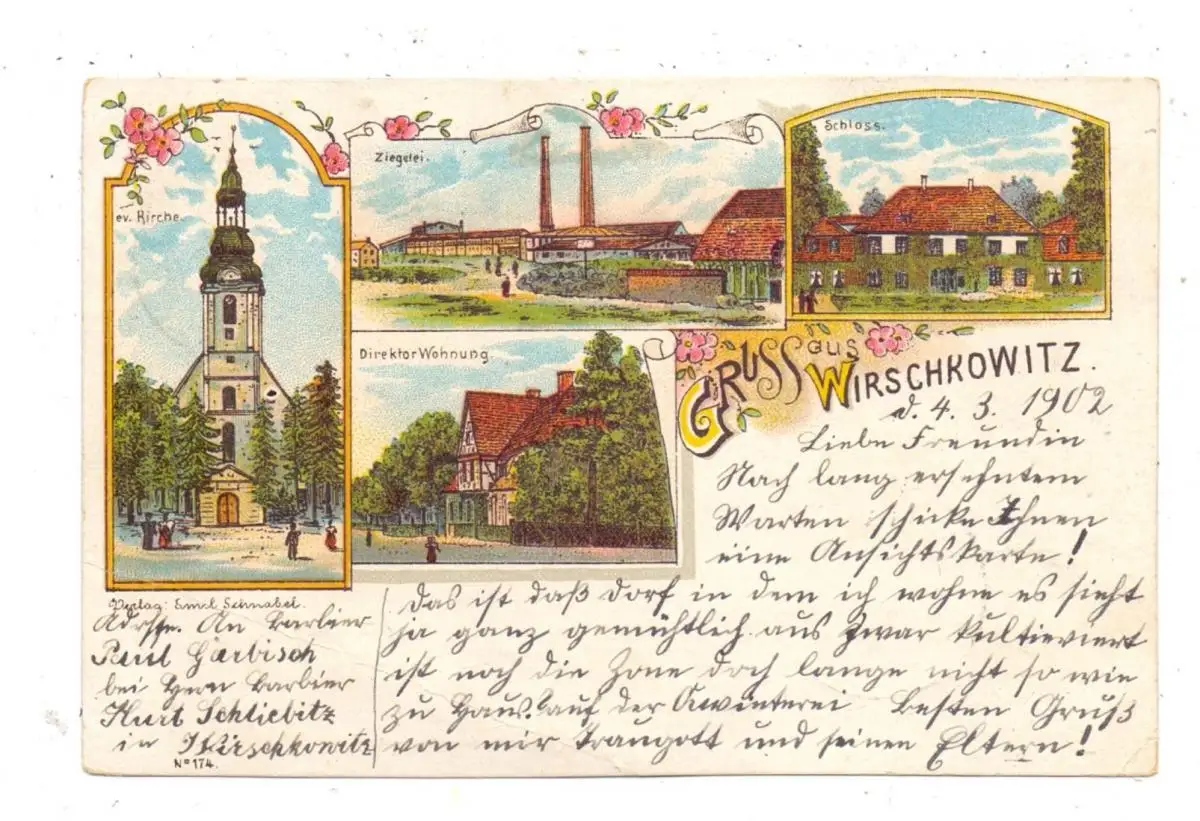 ev. Kirche.
Ziegelei.
Schloss.
Direktor Wohnung.
GRUSS aus WIRSCHKOWITZ.
d. 4. 3. 1902
Liebe Freundin
Nach lang ersehntem
Warten schicke Ihnen
eine Ansichtskarte!
Das ist daß Dorf in dem ich wohne es sieht
ja ganz gemühtlich aus zwar kultieviert
ist noch die Zone doch lange nicht so wie
zu Haus. auf der Besten Gruß
von mir Traugott und seinen Eltern!
Verlag: Emil Schnabel.
Adrste. An Barbier
Paul Garbisch
bei Hern Barbier
Kurt Schliebitz
in Wirschkowitz
No 174.